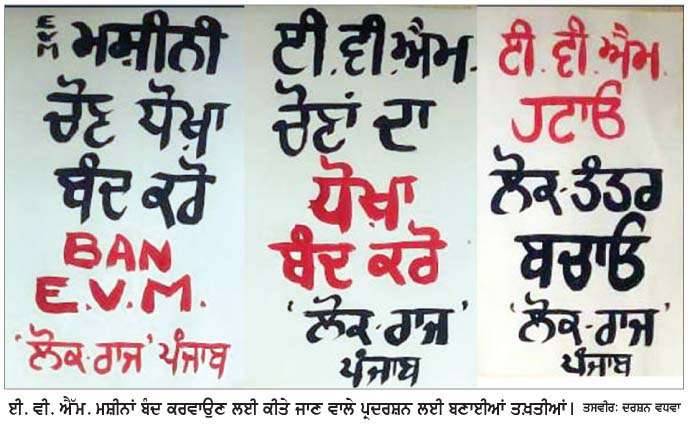 EVM ਮਸ਼ੀਨੀ
ਚੋਣ ਧੋਖ਼ਾ
ਬੰਦ ਕਰੋ
BAN
E.V.M.
'ਲੋਕ-ਰਾਜ' ਪੰਜਾਬ
ਈ.ਵੀ.ਐਮ.
ਚੋਣਾਂ ਦਾ
ਧੋਖ਼ਾ
ਬੰਦ ਕਰੋ
'ਲੋਕ-ਰਾਜ'
ਪੰਜਾਬ
ਈ.ਵੀ.ਐਮ.
ਹਟਾਓ
ਲੋਕ-ਤੰਤਰ
ਬਚਾਓ
'ਲੋਕ-ਰਾਜ'
ਪੰਜਾਬ
ਈ. ਵੀ. ਐੱਮ. ਮਸ਼ੀਨਾਂ ਬੰਦ ਕਰਵਾਉਣ ਲਈ ਕੀਤੇ ਜਾਣ ਵਾਲੇ ਪ੍ਰਦਰਸ਼ਨ ਲਈ ਬਣਾਈਆਂ ਤਖ਼ਤੀਆਂ। ਤਸਵੀਰ: ਦਰਸ਼ਨ ਵਧਵਾ